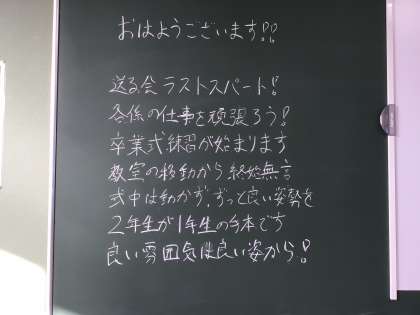 おはようございます!!
送る会ラストスパート!
各係の仕事を頑張ろう!
卒業式練習が始まります
教室の移動から終始無言
式中は動かず、ずっと良い姿勢を
2年生が1年生の手本です
良い雰囲気は良い姿から!